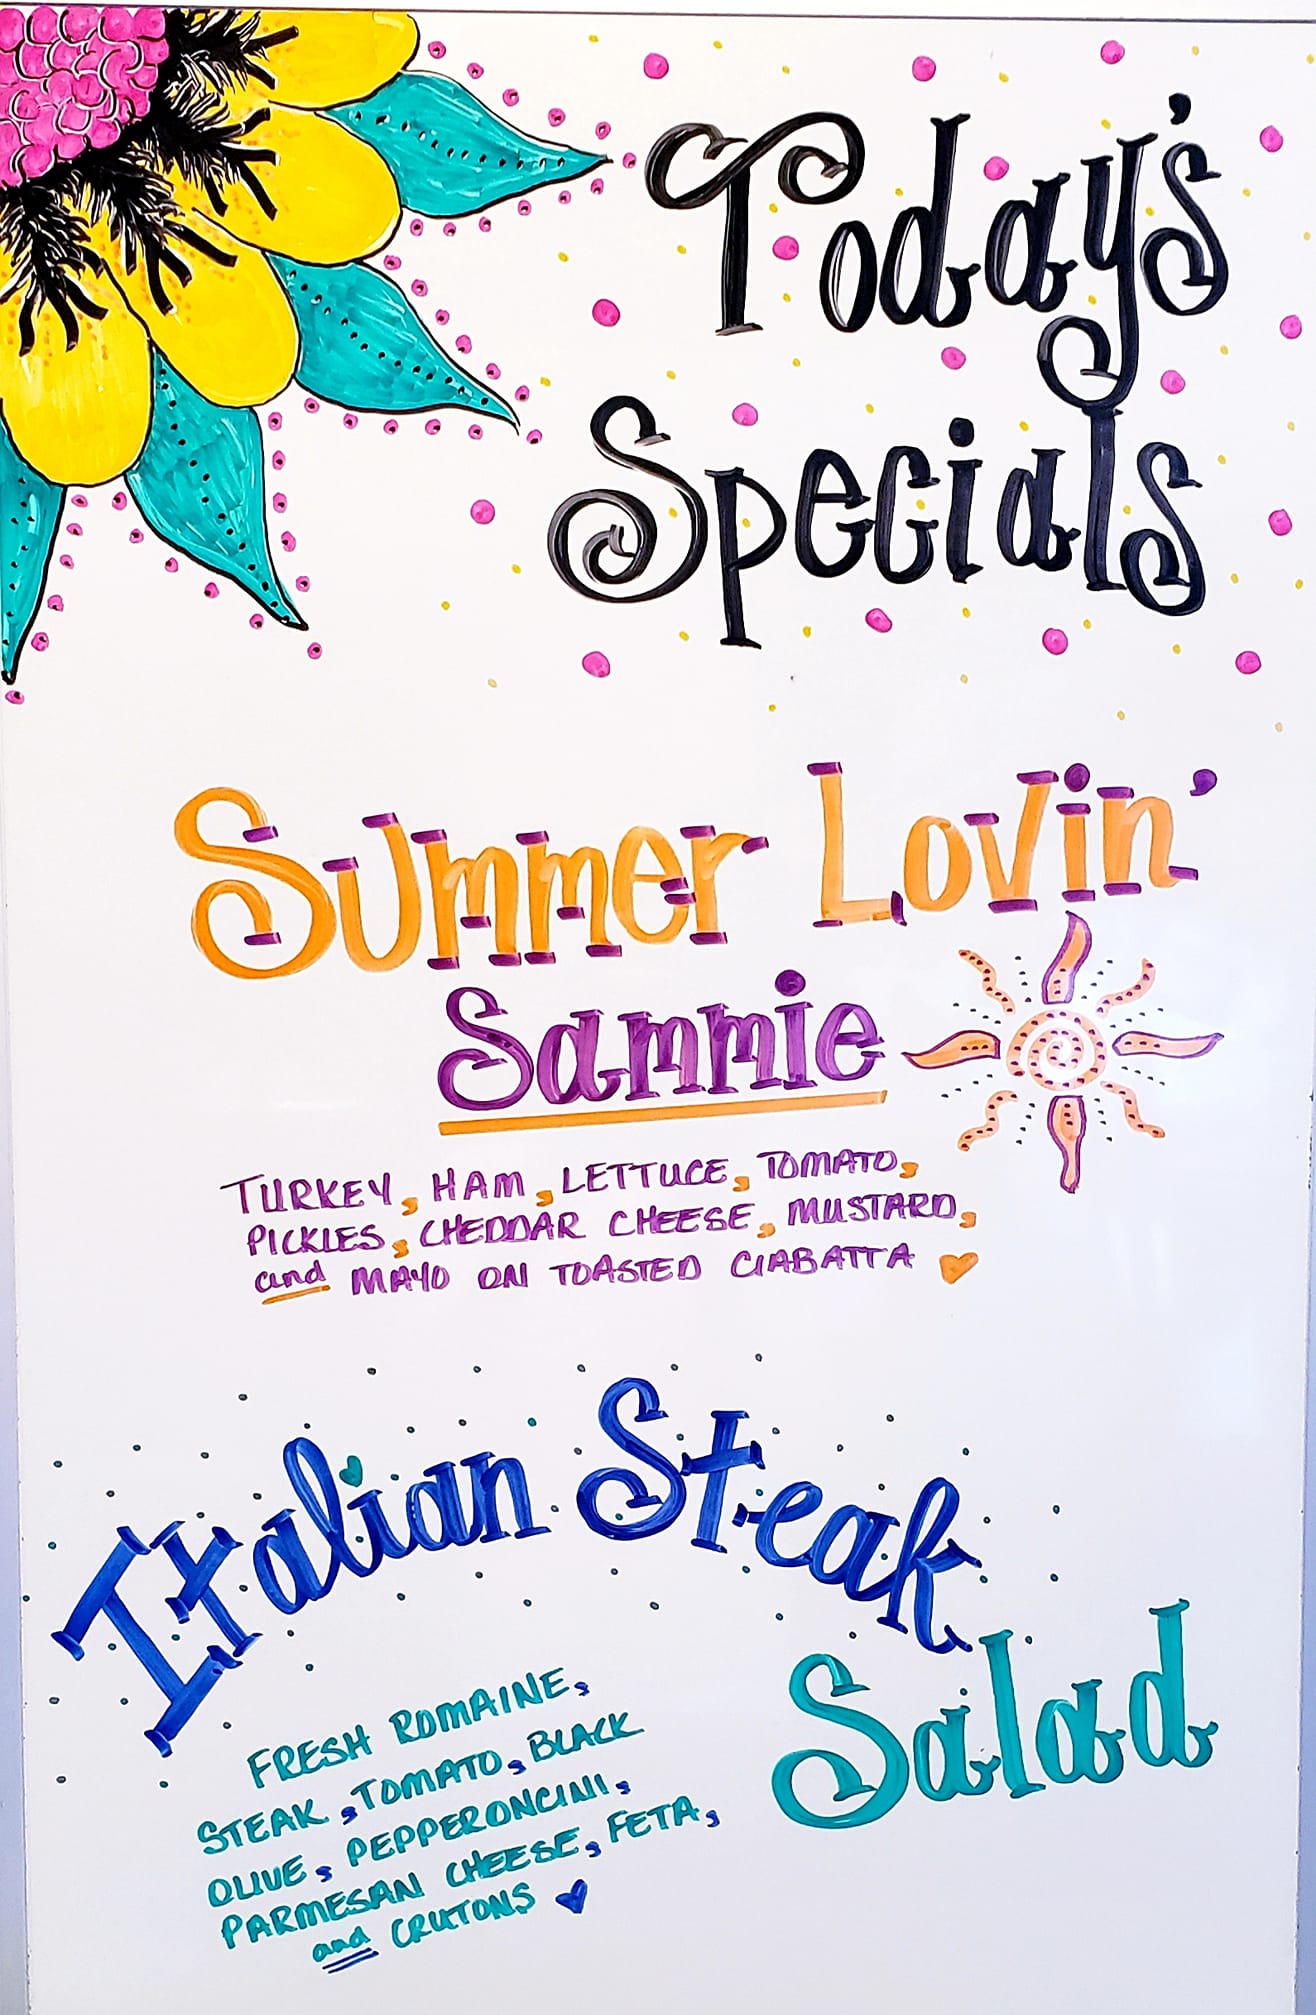 Today's
Specials
Summer Lovin'
Sammie
TURKEY, HAM, LETTUCE, TOMATO,
PICKLES, CHEDDAR CHEESE, MUSTARD,
and MAYO ON TOASTED CIABATTA
Italian Steak
Salad
FRESH ROMAINE,
STEAK, TOMATO, BLACK
OLIVE, PEPPERONCINI,
PARMESAN CHEESE, FETA,
and CRUTONS